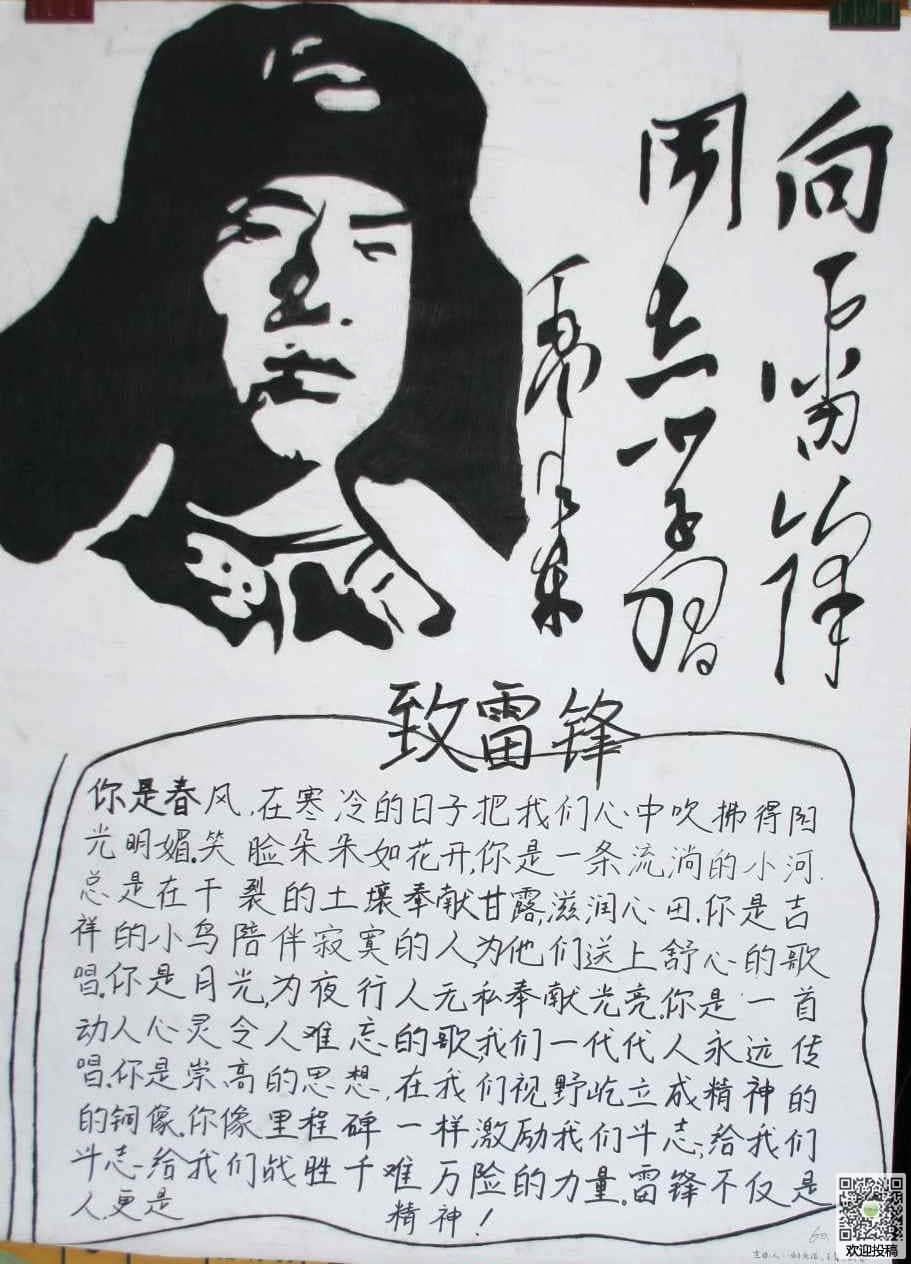 向雷锋
同志学习
毛泽东
致雷锋
你是春风,在寒冷的日子把我们心中吹拂得阳
光明媚.笑脸朵朵如花开,你是一条流淌的小河.
总是在干裂的土壤奉献甘露,滋润心田.你是吉
祥的小鸟陪伴寂寞的人,为他们送上舒心的歌
唱.你是月光,为夜行人无私奉献光亮.你是一首
动人心灵令人难忘的歌,我们一代代人永远传
唱.你是崇高的思想,在我们视野屹立成精神的
的铜像.你像里程碑一样激励我们斗志,给我们
斗志-给我们战胜千难万险的力量.雷锋不仅是
人,更是 精神!
欢迎投稿